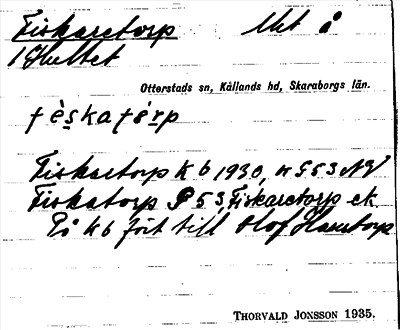 Fiskaretorp Ukt å
1 Hultet
Otterstads sn, Kållands hd, Skaraborgs län.
fèskatórp
Fiskartorp Kb 1930, NV
Fiskatorp P 53, Fiskaretorp ek
På Kb fört till Olof Hamrtorp
THORVALD JONSSON 1935.